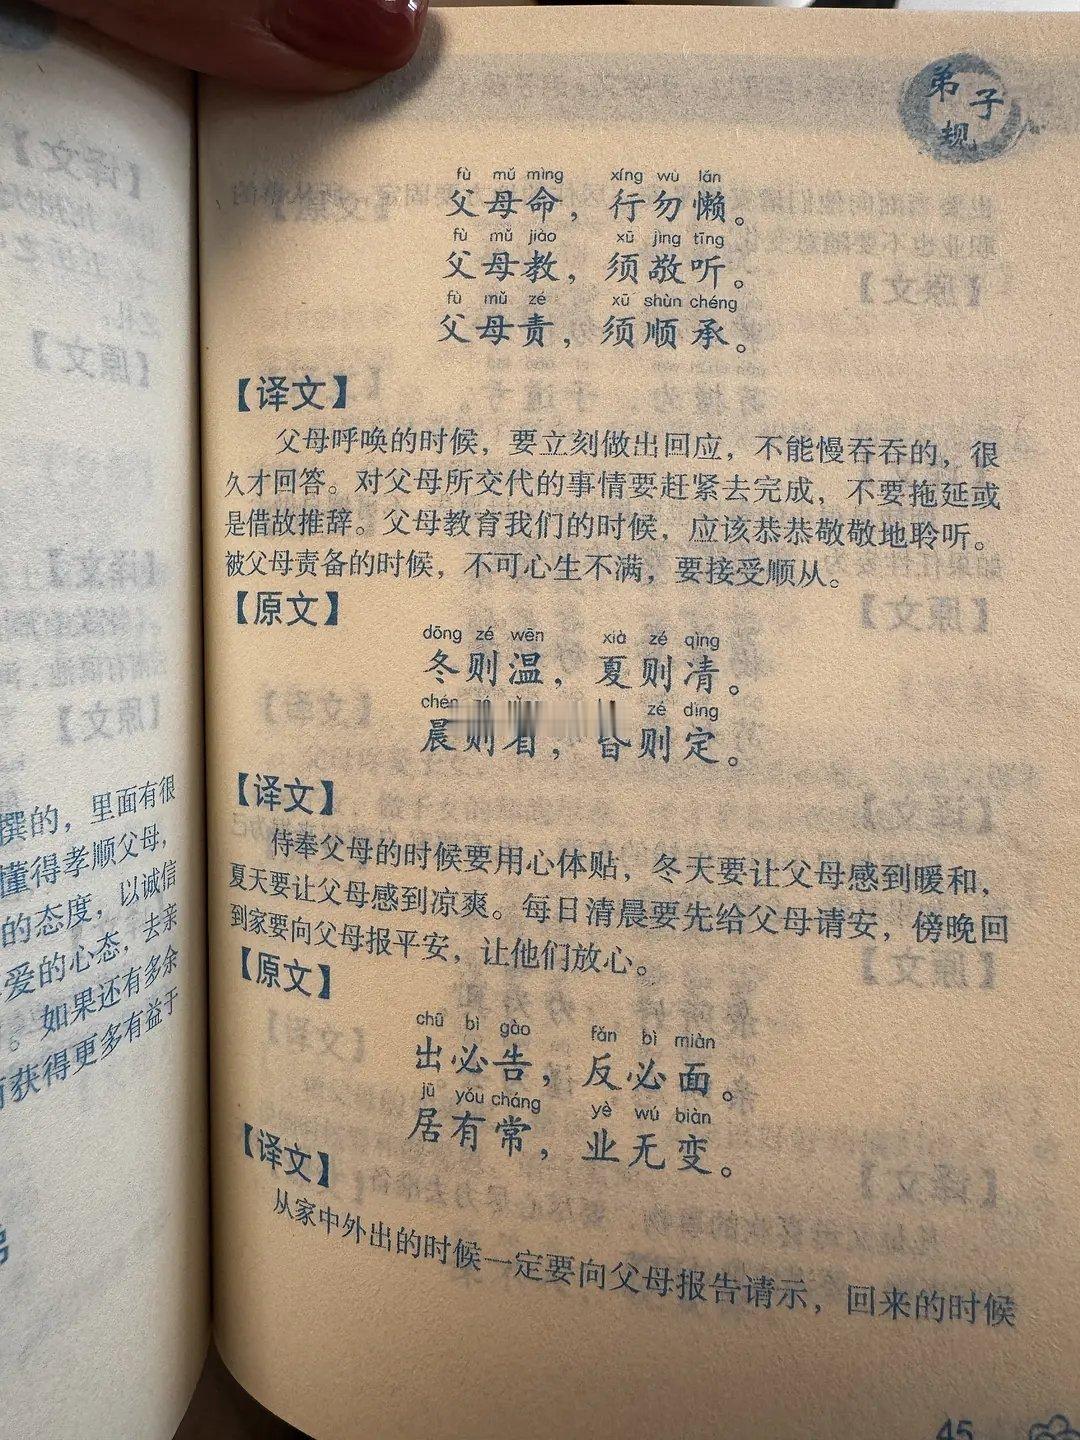 撰的，里面有很
懂得孝顺父母，
的态度，以诚信
爱的心态，去亲
。如果还有多余
获得更多有益于
弟子规
fù mǔ mìng xíng wù lǎn
父母命，行勿懒。
fù mǔ jiào xū jìng tīng
父母教，须敬听。
fù mǔ zé xū shùn chéng
父母责，须顺承。
【译文】
父母呼唤的时候，要立刻做出回应，不能慢吞吞的，很
久才回答。对父母所交代的事情要赶紧去完成，不要拖延或
是借故推辞。父母教育我们的时候，应该恭恭敬敬地聆听。
被父母责备的时候，不可心生不满，要接受顺从。
【原文】
dōng zé wēn xià zé qìng
冬则温，夏则清。
chén zé zé dìng
晨则省，昏则定。
【译文】
侍奉父母的时候要用心体贴，冬天要让父母感到暖和，
夏天要让父母感到凉爽。每日清晨要先给父母请安，傍晚回
到家要向父母报平安，让他们放心。
【原文】
chū bì gào fǎn bì miàn
出必告，反必面。
jū yǒu cháng yè wú biàn
居有常，业无变。
【译文】
从家中外出的时候一定要向父母报告请示，回来的时候
45